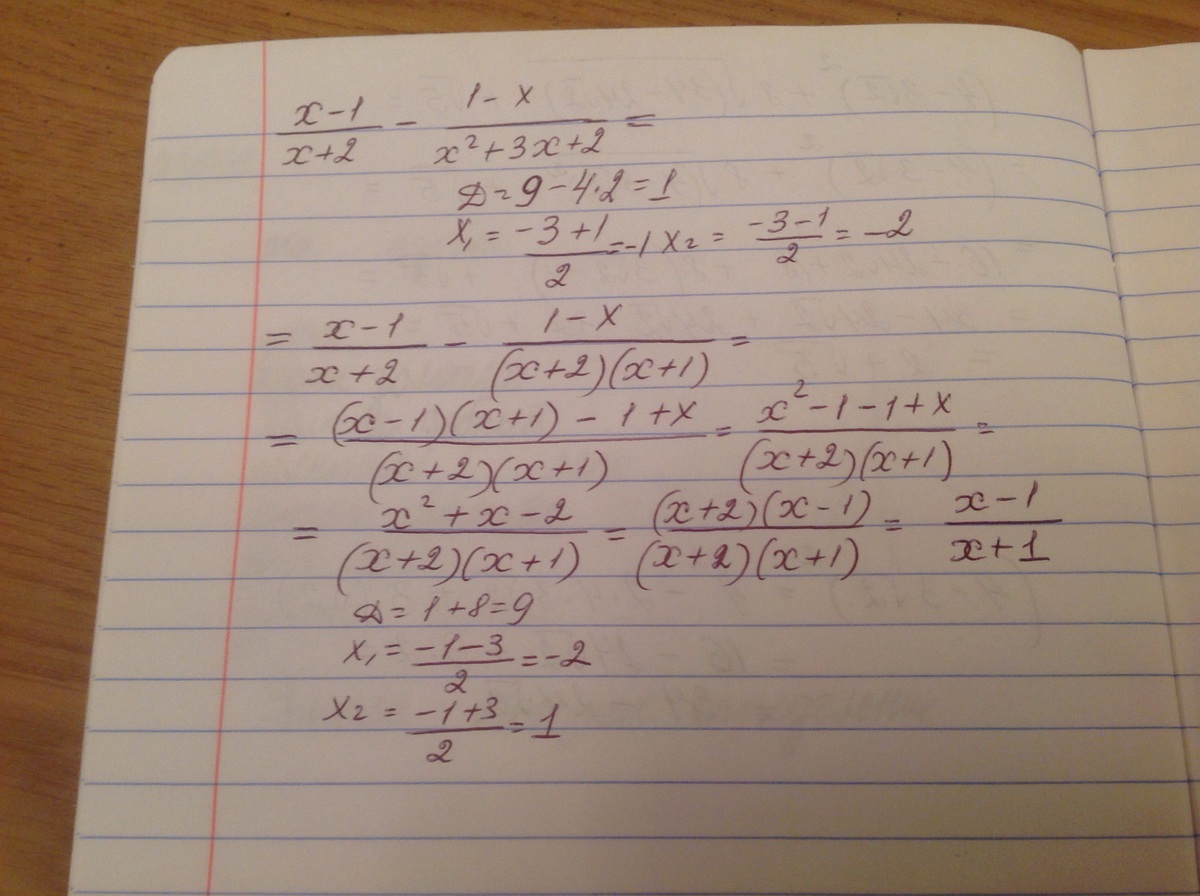 (x-1)/(x+2) - (1-x)/(x²+3x+2) =
D=9-4·2=1
x₁ = (-3+1)/2 =-1 x₂ = (-3-1)/2 = -2
= (x-1)/(x+2) - (1-x)/((x+2)(x+1)) =
= ((x-1)(x+1)-1+x)/((x+2)(x+1)) = (x²-1-1+x)/((x+2)(x+1)) =
= (x²+x-2)/((x+2)(x+1)) = ((x+2)(x-1))/((x+2)(x+1)) = (x-1)/(x+1)
D=1+8=9
x₁ = (-1-3)/2 =-2
x₂ = (-1+3)/2 = 1